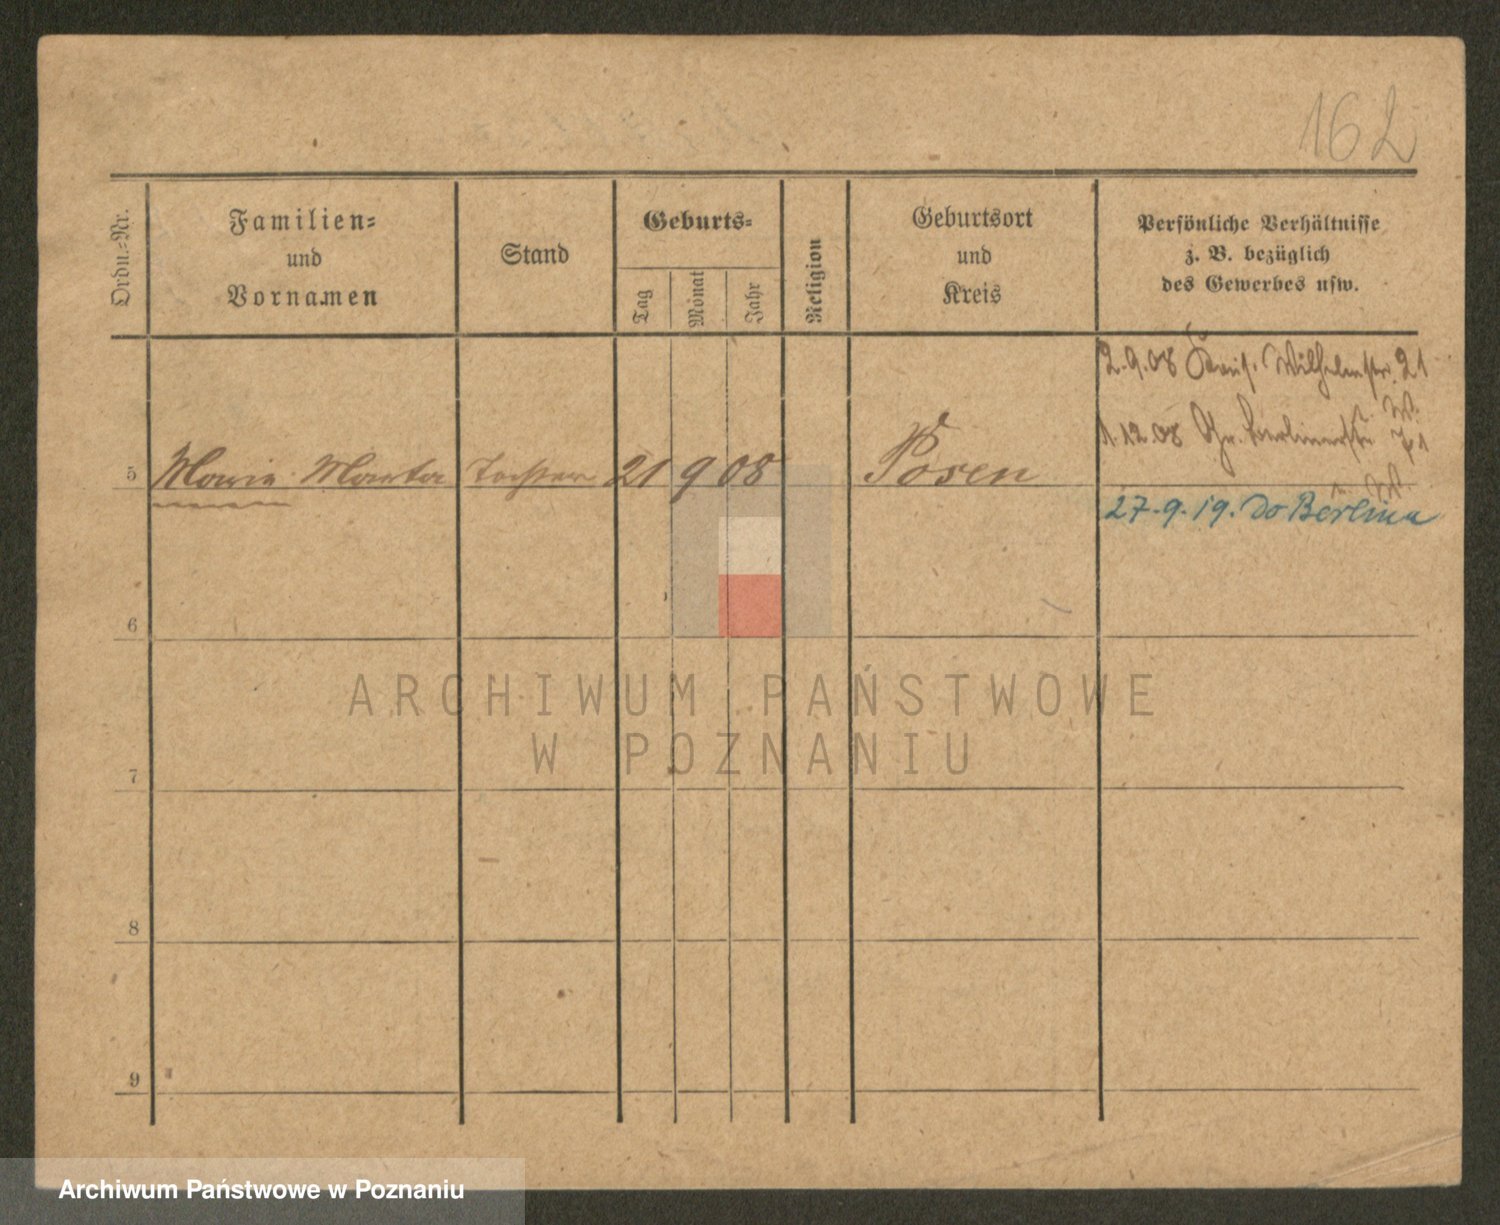 162
Ordn.-Nr.
Familien-
und
Vornamen
Stand
Geburts-
Tag
Monat
Jahr
Religion
Geburtsort
und
Kreis
Persönliche Verhältnisse
z. B. bezüglich
des Gewerbes usw.
2.9.08 Wilhelmstr. 21
W.
1.12.08 Gr. Berlinerstr. 71
W.
5 Marie Marta Tochter 21 9 08 Posen
27.9.19. do Berlina
6
ARCHIWUM PAŃSTWOWE
W POZNANIU
7
8
9
Archiwum Państwowe w Poznaniu